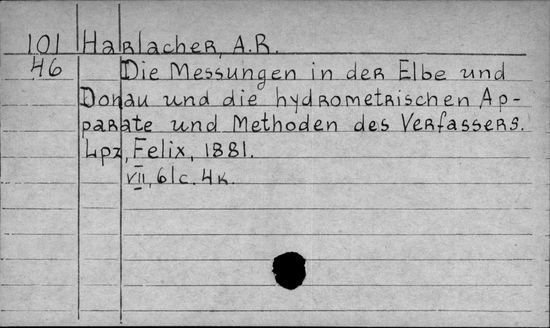 101 Harlacher, A.R.
46 Die Messungen in der Elbe und
Donau und die hydrometrischen Ap-
parate und Methoden des Verfassers.
Lpz, Felix, 1881.
VII, 61c. 4к.